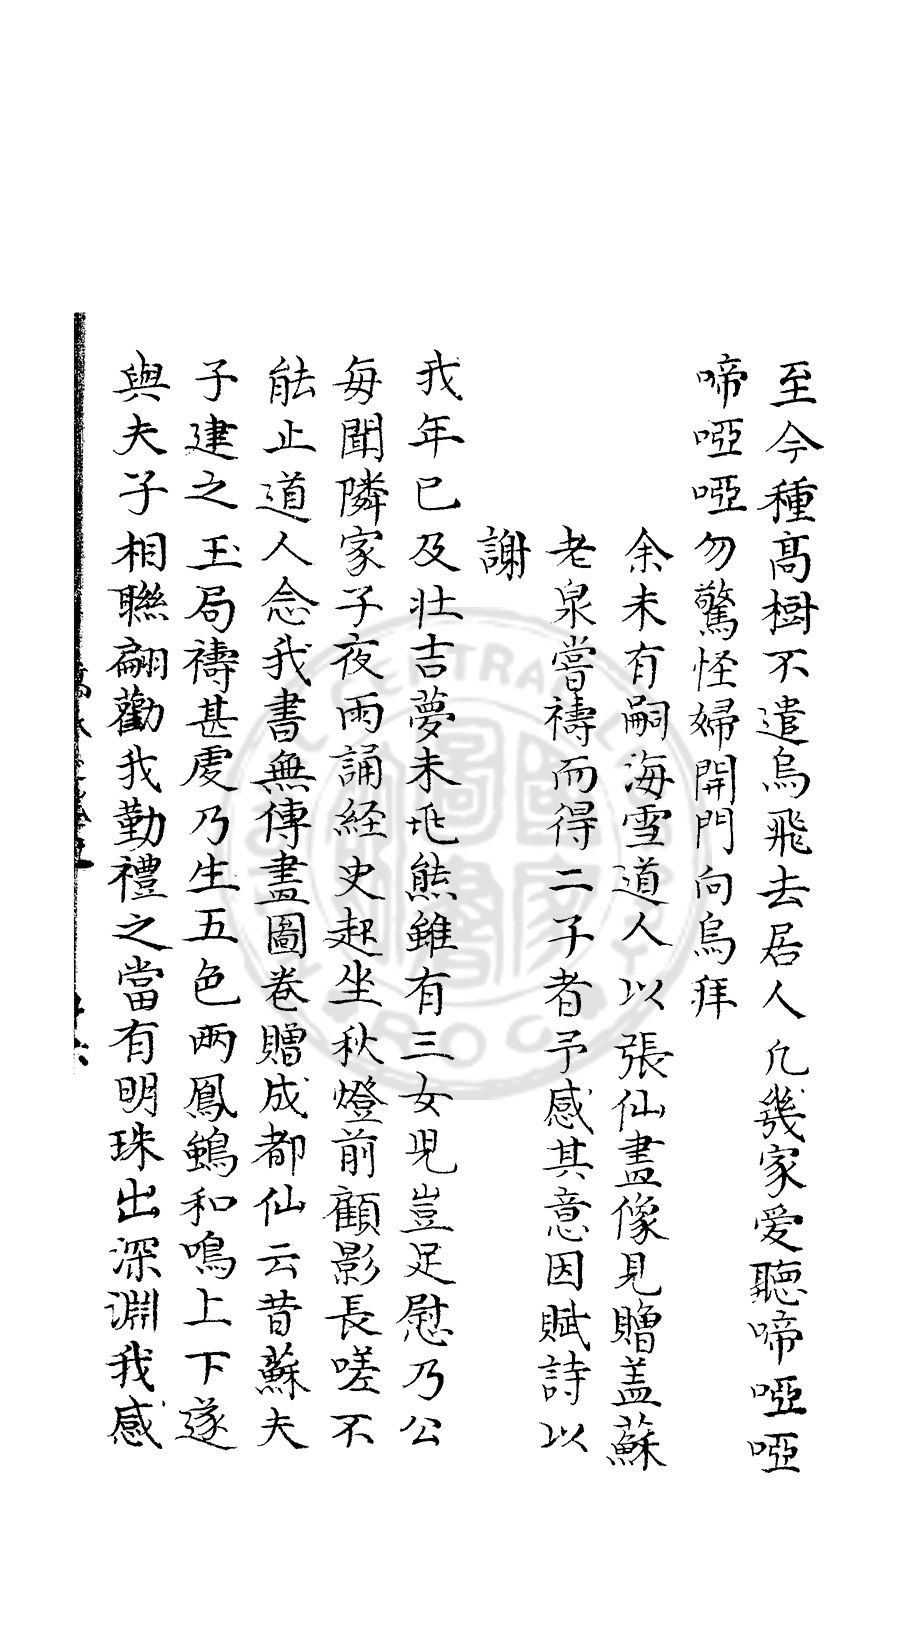 至今種高樹不遣烏飛去居人凢幾家爱聽啼啞啞
啼啞啞勿驚怪婦開門向烏拜
余未有嗣海雪道人以張仙畫像見贈盖蘇
老泉嘗禱而得二子者予感其意因賦詩以
謝
我年已及壮吉夢未占熊雖有三女児豈足慰乃公
每聞隣家子夜雨誦経史起坐秋燈前顧影長嗟不
能止道人念我書無傳畫圖卷贈成都仙云昔蘇夫
子建之玉局禱甚虔乃生五色两鳳鵷和鳴上下遂
與夫子相聯翩勸我勤禮之當有明珠出深淵我感